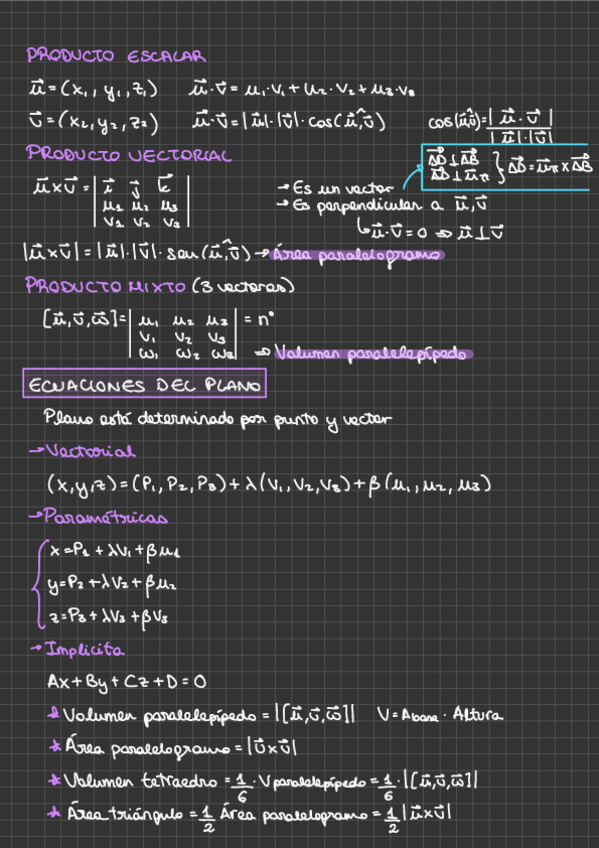 PRODUCTO ESCALAR
μ⃗=(x₁, y₁, z₁) μ⃗·v⃗=μ₁·v₁+μ₂·v₂+μ₃·v₃
v⃗=(x₂, y₂, z₂) μ⃗·v⃗=|μ⃗|·|v⃗|·cos(μ⃗,v⃗) cos(μ⃗,v⃗)=|μ⃗·v⃗| / |μ⃗|·|v⃗|
PRODUCTO VECTORIAL
AD⃗⊥AB⃗
AD⃗⊥μ⃗π } AD⃗=μ⃗π×AB⃗
μ⃗×v⃗=| i⃗ j⃗ k⃗ |
| μ₁ μ₂ μ₃ |
| v₁ v₂ v₃ |
→Es un vector
→Es perpendicular a μ⃗,v⃗
↳μ⃗·v⃗=0 ⇒ μ⃗⊥v⃗
|μ⃗×v⃗|=|μ⃗|·|v⃗|·sen(μ⃗,v⃗)→Área paralelogramo
PRODUCTO MIXTO (3 vectores)
[μ⃗,v⃗,ω⃗]=| μ₁ μ₂ μ₃ | = nº
| v₁ v₂ v₃ |
| ω₁ ω₂ ω₃ | ⇒ Volumen paralelepípedo
ECUACIONES DEL PLANO
Plano está determinado por punto y vector
→Vectorial
(x,y,z)=(P₁, P₂, P₃)+λ(v₁,v₂,v₃)+β(μ₁,μ₂,μ₃)
→Paramétricas
x=P₁+λv₁+βμ₁
y=P₂+λv₂+βμ₂
z=P₃+λv₃+βv₃
→Implícita
Ax+By+Cz+D=0
*Volumen paralelepípedo=|[μ⃗,v⃗,ω⃗]| V=Abase·Altura
*Área paralelogramo=|v⃗×v⃗|
*Volumen tetraedro=1/6·Vparalelepípedo=1/6·|[μ⃗,v⃗,ω⃗]|
*Área triángulo=1/2 Área paralelogramo=1/2|μ⃗×v⃗|